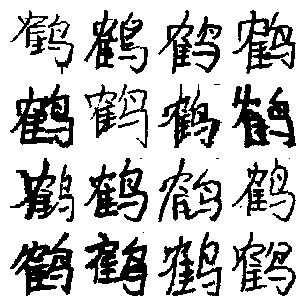 鹤鹤鹤鹤
鹤鹤鹤鹤
鹤鹤鹤鹤
鹤鹤鹤鹤